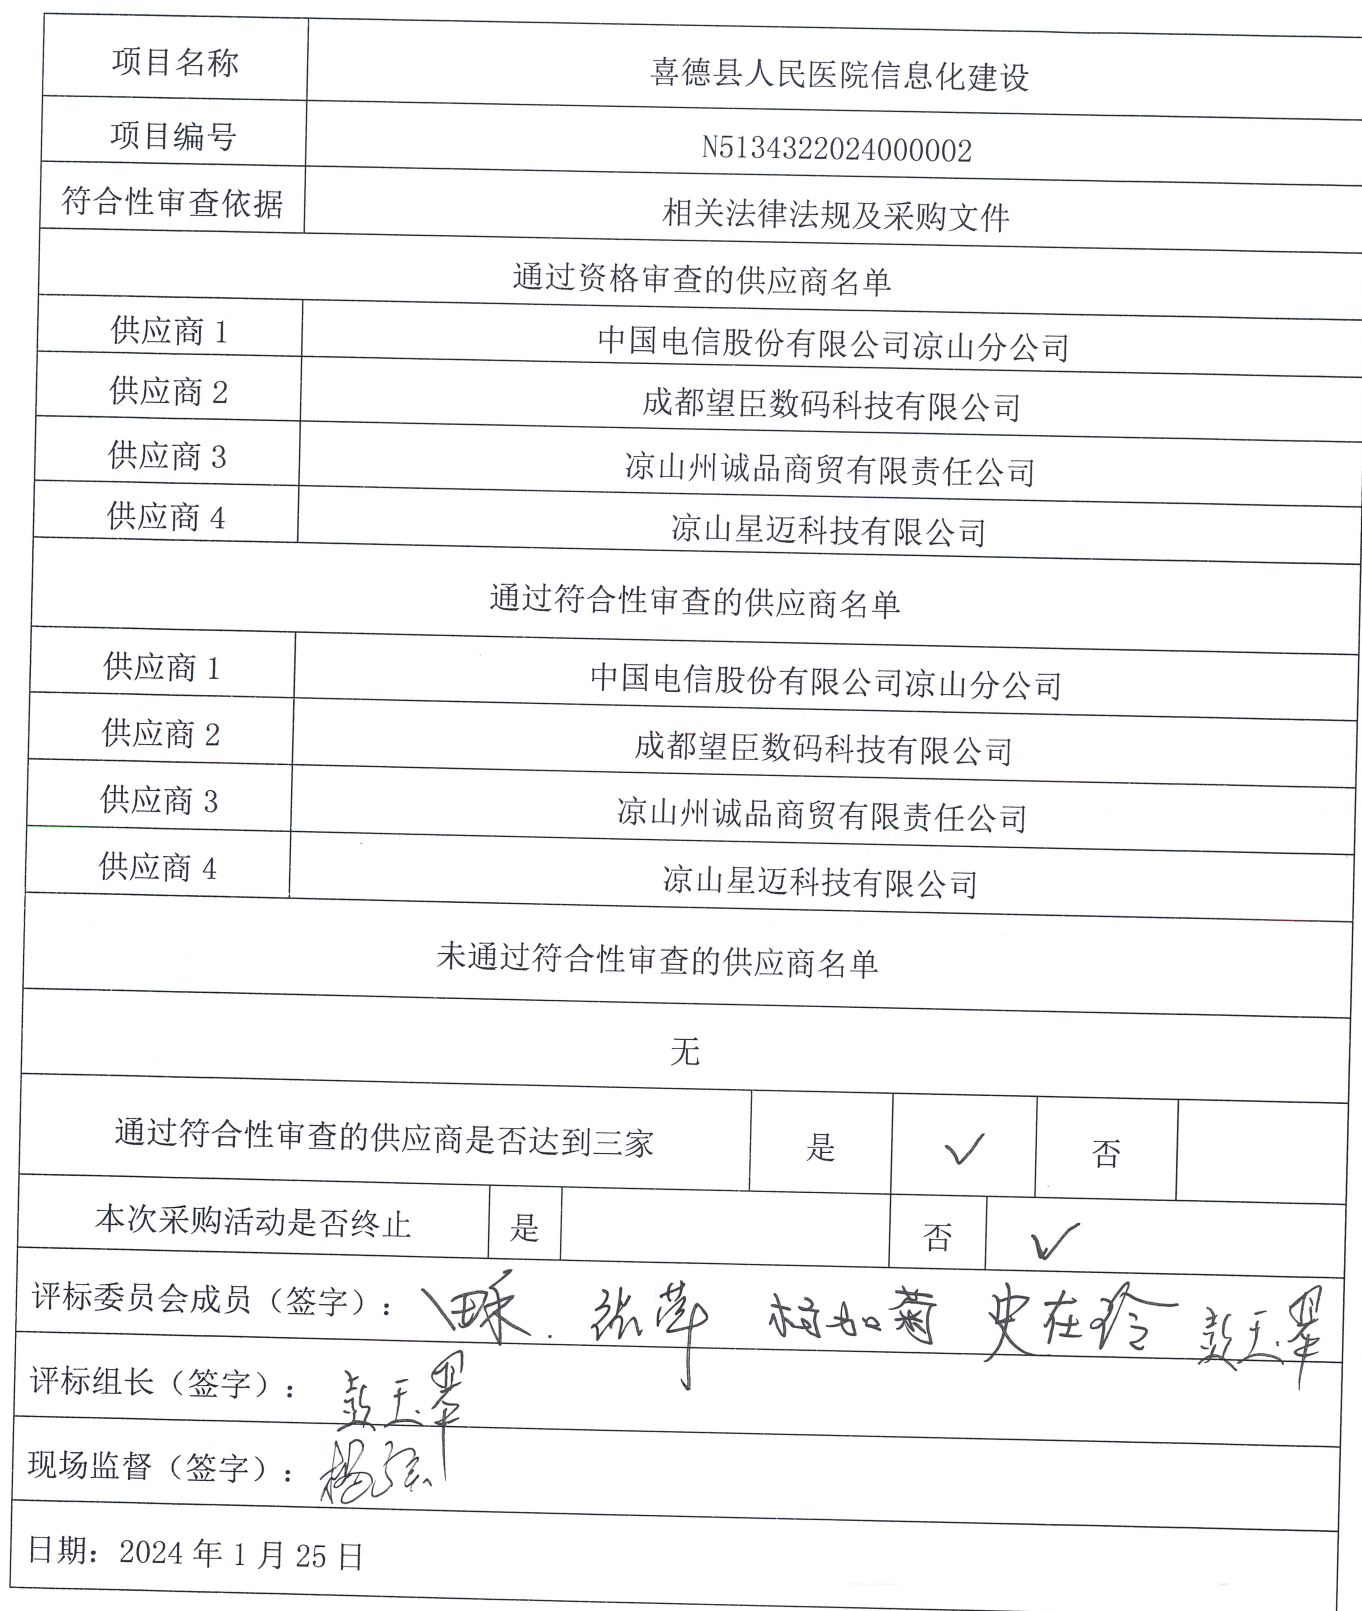 项目名称 喜德县人民医院信息化建设
项目编号 N5134322024000002
符合性审查依据 相关法律法规及采购文件
通过资格审查的供应商名单
供应商 1 中国电信股份有限公司凉山分公司
供应商 2 成都望臣数码科技有限公司
供应商 3 凉山州诚品商贸有限责任公司
供应商 4 凉山星迈科技有限公司
通过符合性审查的供应商名单
供应商 1 中国电信股份有限公司凉山分公司
供应商 2 成都望臣数码科技有限公司
供应商 3 凉山州诚品商贸有限责任公司
供应商 4 凉山星迈科技有限公司
未通过符合性审查的供应商名单
无
通过符合性审查的供应商是否达到三家 是 ✓ 否
本次采购活动是否终止 是 否 ✓
评标委员会成员（签字）： 张萍 史在玲
评标组长（签字）：
现场监督（签字）：
日期：2024 年 1 月 25 日